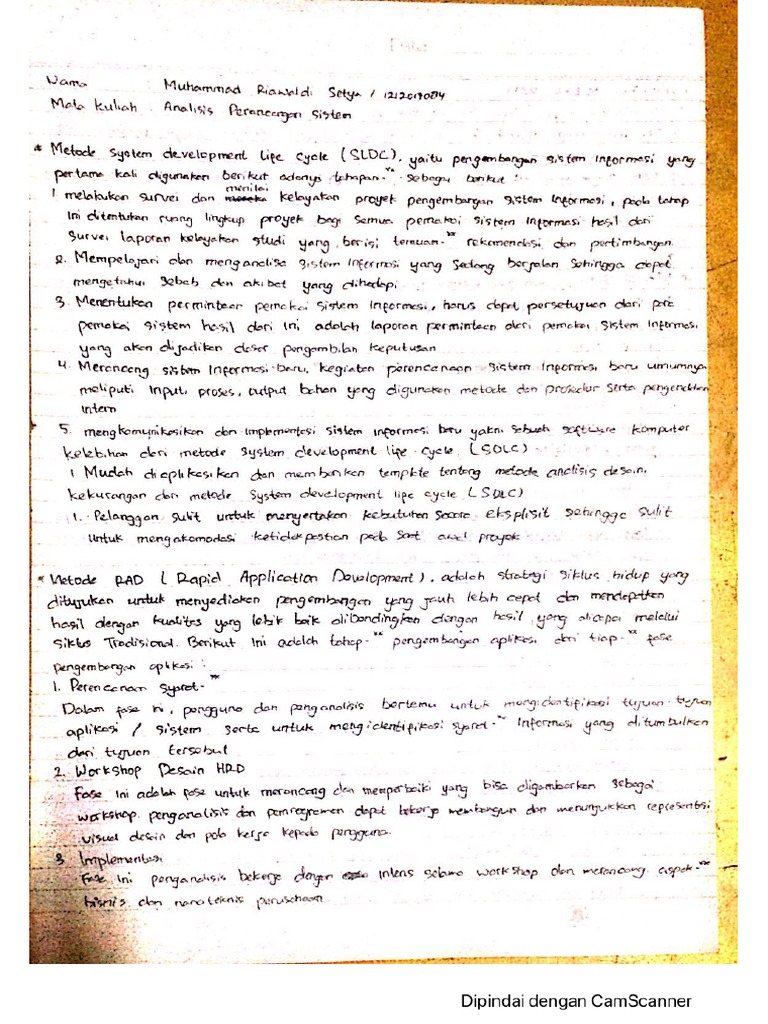 Nama Muhammad Riawaldi Setya / 1212017084
Mata kuliah Analisis Perancangan Sistem
* Metode System development Life Cycle (SLDC), yaitu pengembangan sistem informasi yang
pertama kali digunakan berikut adanya tahapan-" sebagai berikut :
1 melakukan survei dan menilai kelayakan proyek pengembangan sistem Informasi, pada tahap
Ini ditentukan ruang lingkup proyek bagi semua pemakai sistem Informasi hasil dari
survei laporan kelayakan studi yang berisi temuan-" rekomendasi dan pertimbangan.
2. Mempelajari dan menganalisa sistem Informasi yang sedang berjalan sehingga dapat
mengetahui sebab dan akibat yang dihadapi
3. Menentukan permintaan pemakai sistem Informasi, harus dapat persetujuan dari para
pemakai sistem hasil dari ini adalah laporan permintaan dari pemakai sistem Informasi
yang akan dijadikan dasar pengambilan keputusan
4. Merancang sistem Informasi baru, kegiatan perencanaan sistem Informasi baru umumnya
meliputi Input, proses, output bahan yang digunakan metode dan prosedur serta pengendalian
Intern
5. mengkomunikasikan dan Implementasi sistem informasi baru yakni sebuah software komputer
kelebihan dari metode system development life cycle (SDLC)
1 Mudah diaplikasikan dan memberikan templte tentang metode analisis desain,
kekurangan dari metode system development lipe cycle (SDLC)
1. Pelanggan sulit untuk menyertakan kebutuhan secara eksplisit sehingga sulit
untuk mengakomodasi ketidakpastian pada saat awal proyek
* Metode RAD (Rapid Application Development), adalah strategi siklus hidup yang
ditujukan untuk menyediakan pengembangan yang jauh lebih cepat dan mendapatkan
hasil dengan kualitas yang lebih baik dibandingkan dengan hasil yang dicapai melalui
siklus Tradisional. Berikut Ini adalah tahap-" pengembangan aplikasi dari tiap-" fase
pengembangan aplikasi :
1. Perencanaan Syarat-"
Dalam fase ini, pengguna dan penganalisis bertemu untuk mengidentifikasi tujuan-tujuan
aplikasi / sistem serta untuk mengidentifikasi syarat-" Informasi yang ditimbulkan
dari tujuan tersebut
2. Workshop Desain HRD
Fase Ini adalah fase untuk merancang dan memperbaiki yang bisa digambarkan sebagai
workshop. penganalisis dan pemrograman dapat bekerja membangun dan menunjukkan representasi
visual desain dan pola kerja kepada pengguna.
3 Implementasi
Fase Ini penganalisis bekerja dengan intens selama workshop dan merancang aspek-"
bisnis dan nonteknis perusahaan
Dipindai dengan CamScanner